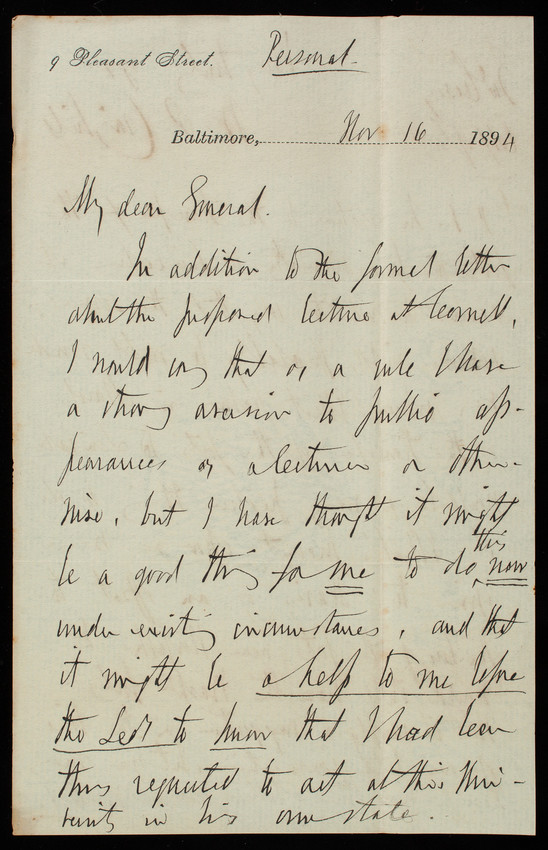 9 Pleasant Street. Personal
Baltimore, Nov 16 1894
My dear General.
In addition to the formal letter
about the proposed lecture at Cornell,
I would say that as a rule I have
a strong aversion to public ap-
pearances as a lecturer or other-
wise, but I have thought it might
be a good thing for me to do this now
under existing circumstances, and that
it might be a help to me before
the Sec'y to know that I had been
thus requested to act at this Uni-
versity in his own state.